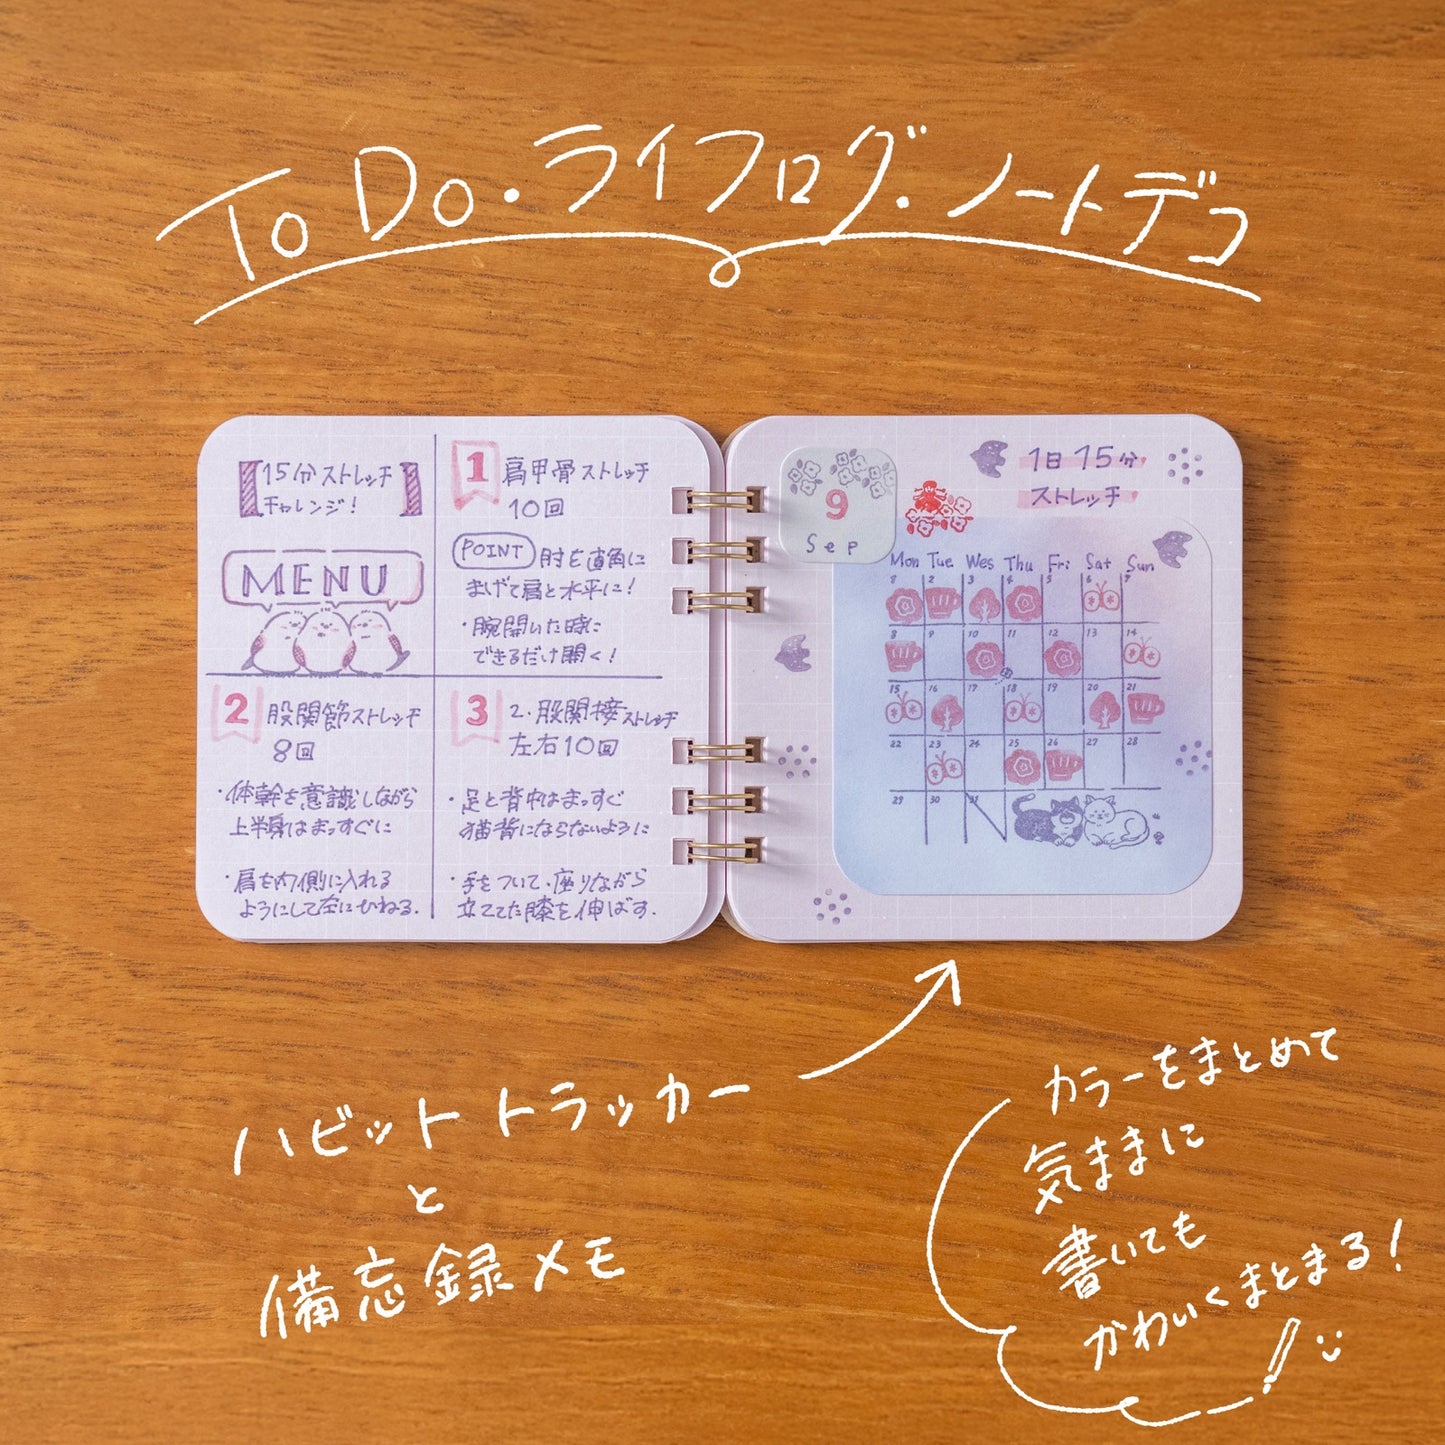 To Do・ライフログ・ノートデコ
15分ストレッチ
チャレンジ!
MENU
1 肩甲骨ストレッチ
10回
POINT 肘を直角に
まげて肩と水平に!
・腕開いた時に
できるだけ開く!
2 股関節ストレッチ
8回
・体幹を意識しながら
上半身はまっすぐに
・肩を内側に入れる
ようにして左にひねる.
3 2.股関接ストレッチ
左右10回
・足と背中はまっすぐ
猫背にならないように
・手をついて、座りながら
立ててた膝を伸ばす.
9
Sep
1日15分
ストレッチ
Mon Tue Wes Thu Fri Sat Sun
2 3 4 5 6 7
8 9 10 11 12 13 14
15 16 17 18 19 20 21
22 23 24 25 26 27 28
29 30 31
ハビットトラッカー
と
備忘録メモ
カラーをまとめて
気ままに
書いても
かわいくまとまる!